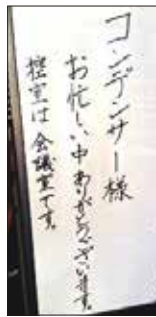 コンデンサー様
お忙しい中ありがとうございます。
控室は会議室です。